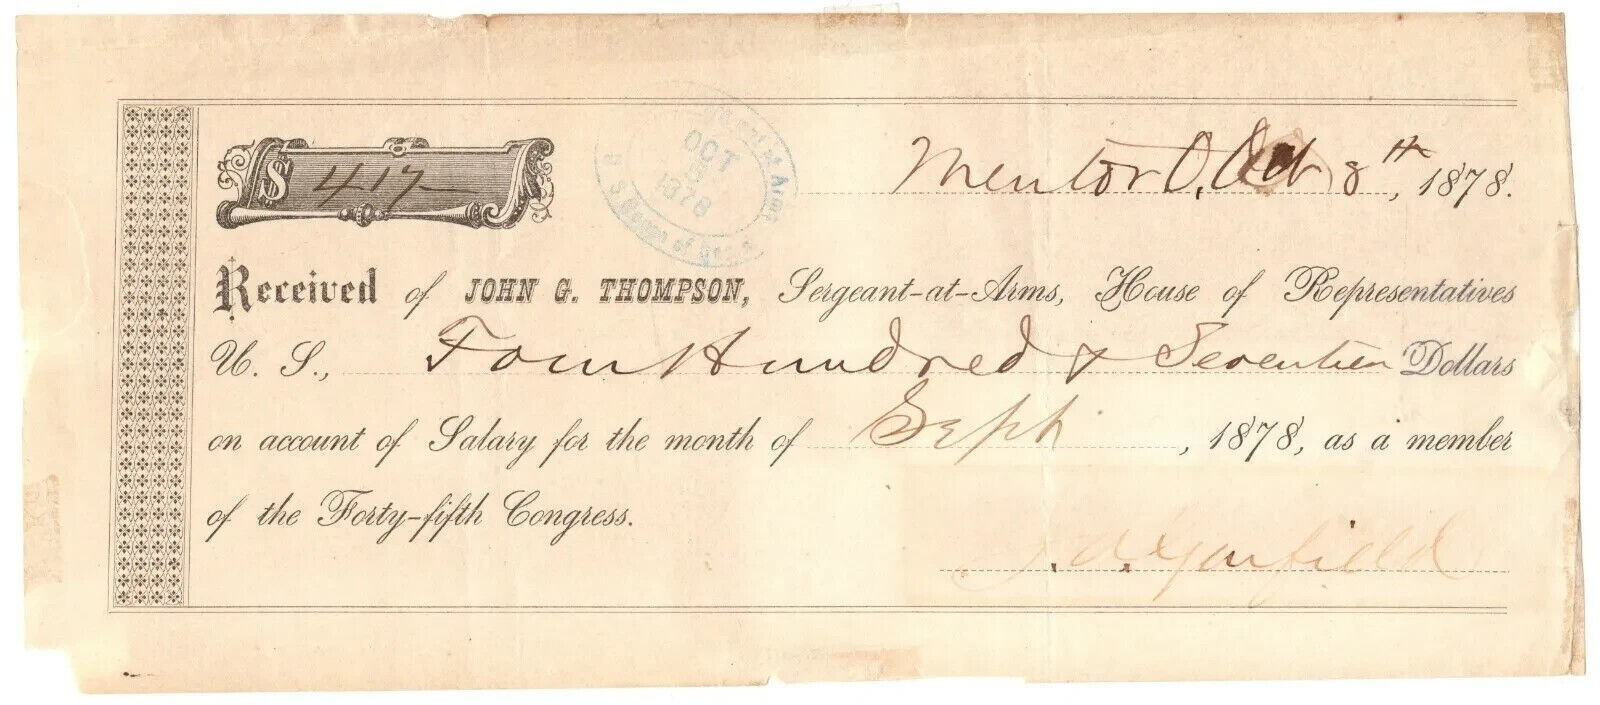 $ 417
OCT
1878
Mentor O. Oct 8th, 1878.
Received of JOHN G. THOMPSON, Sergeant-at-Arms, House of Representatives
U. S., Four Hundred & Seventeen Dollars
on account of Salary for the month of Sept., 1878, as a member
of the Forty-fifth Congress.
J. A. Garfield